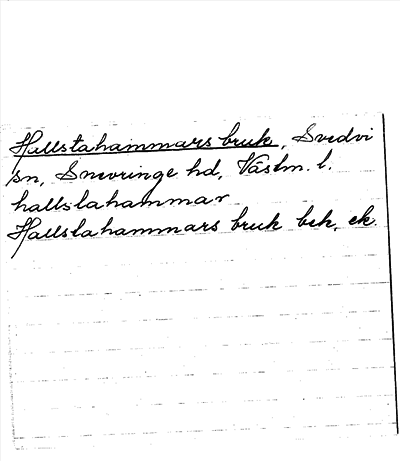 Hallstahammars bruk, Svedvi
sn, Snevringe hd, Västm. l.
hallstahammar
Hallstahammars bruk bek. ek.